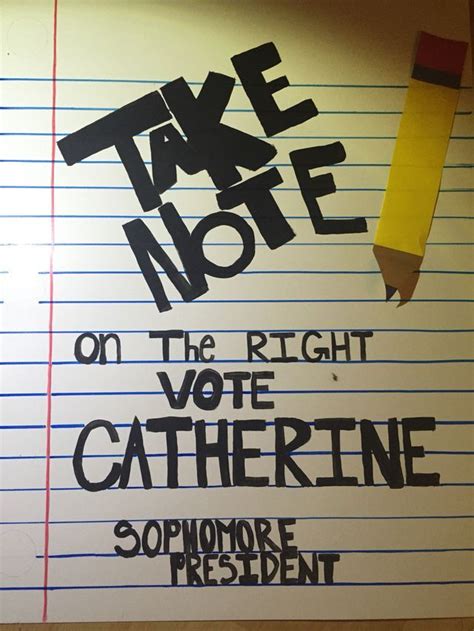 TAKE
NOTE
on The RIGHT
VOTE
CATHERINE
SOPHOMORE
PRESIDENT